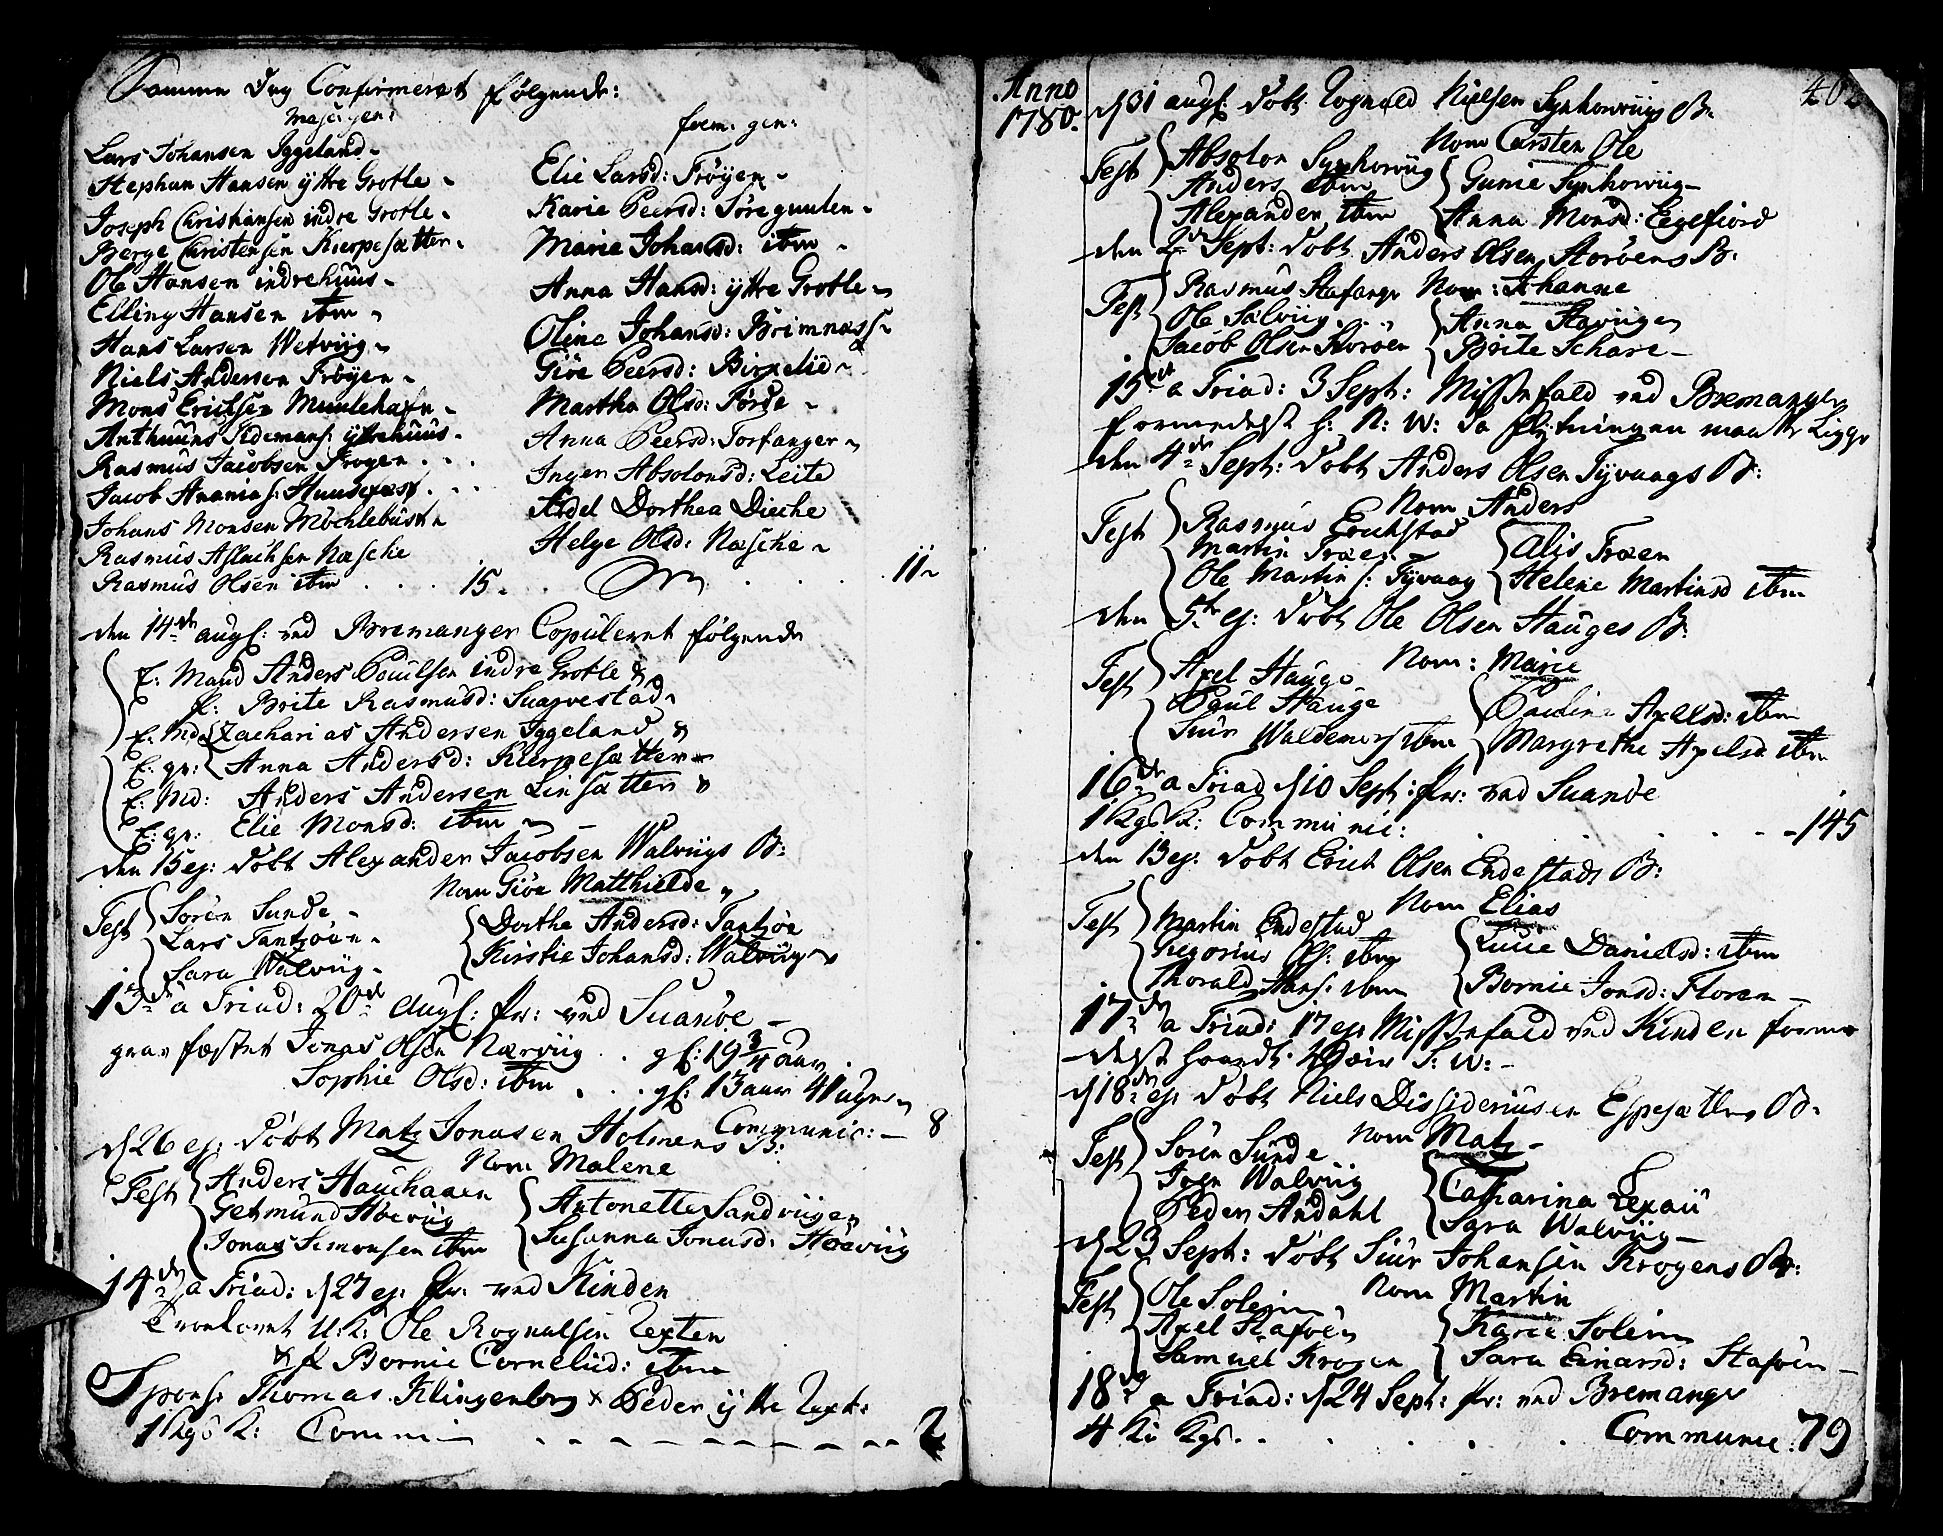 Samme Dag Confirmeret følgende:
masc: gen:
Lars Johansen Iggeland
Stephan Hansen ÿttre Grotle
Joseph Christiansen indre Grotle
Berge Christensen Kierpesætter
Ole Hansen indrehuus
Elling Hansen ibm
Hans Larsen Wetviig
Niels Andersen Frøyen
Mons Erichsen Muulehafn
Anthuuns Tidemans: ÿttrehuus
Rasmus Jacobsen Frøyen . . .
Jacob Ananias: Huusefast . . .
Johans Monsen Møchlebust
Rasmus Aslachsen Næsche
Rasmus Olsen ibm . . . . 15
foem: gen:
Elie Larsd: Frøyen
Karie Peersd: Søregunlen
Marie Johansd: ibm
Anna Hansd: ÿttre Grotle
Oline Johansd: Brimnæss
Giøe Peersd: Birkelie
Martha Olsd: Førde
Anna Peersd: Torfanger
Inger Absolonsd: Leite
Ardel Dorthea Dieche
Helge Olsd: Næsche
. . . . . 11
den 14de augs: ved Bremanger Copuleret følgende
E: Mand Anders Poulsen indre Grotle &
P: Brite Rasmusd: Svarvestad
E: Md: Zacharias Andersen Iggeland &
E: gr: Anna Andersd: Kierpesætter
E: Md: Anders Andersen Linsætter &
E: gr: Elie Monsd: ibm
den 15 ej: døbt Alexander Jacobsen Walviigs B:
Nom Giøe Matthielde
Test Søren Sunde
Lars Tantzøen
Sara Walviig
Dorthe Andersd: Tantzøe
Kirstie Johansd: Walviig
13de a Triad: 20de Augs: Pr: ved Svanøe
gravfæstet Jonas Olsen Nærviig . . gl: 19 3/4 aar
Sophie Olsd: ibm . . . gl: 13 aar 41 uger
Communic: — 8
d 26 ej: døbt Matz Jonasen Holmens B:
Nom Malene
Test Anders Hauehaaen
Getmund Høeviig
Jonas Simonsen ibm
Antonette Sandviigen
Susanna Jonasd: Høeviig
14de a Triad: d 27 ej: Pr: ved Kinden
Trovlovet U:K: Ole Rognalsen Texten
& P Bornie Cornelied: ibm
Spons: Thomas Klingenberg & Peder ÿttre Text:
1 Kgs K: Comm: — — — — — — 2
Anno
1780.
402
d 31 augs: døbt Rognald Nielsen Synhorviigs B:
Nom Carsten Ole
Test Absolon Synhorviig
Anders ibm
Alexander ibm
Gunie Synhorviig
Anna Monsd: Eegefiord
den 2den Sept: døbt Anders Olsen Storøens B:
Nom: Johanne
Test Rasmus Stafange
Ole Sælviig . .
Jacob Olsen Storøen
Anna Staviigen
Brite Schare
15de a Triad: 3 Sept: Missefald ved Bremanger
formedelst h: N: W: da flytningen maatte ligge
den 4de Sept: døbt Anders Olsen Tyvaags B:
Nom Anders
Test Rasmus Erichstad
Martin Træen
Ole Martins: Tyvaag
Alis Træen
Helene Martinsd ibm
den 5te ej: døbt Ole Olsen Hauges B:
Nom: Marie
Test Axel Hauge
Paul Hauge
Siur Waldemars ibm
Pauline Axelsd: ibm
Margrethe Axelsd ibm
16de a Triad d 10 Sept: Pr: ved Svanøe
1 Kgs K: Communic: . . . . . 145
den 13 ej: døbt Erich Olsen Endestads B:
Nom Elias
Test Martin Endestad
Gregorius Ols: ibm
Thorald Hans: ibm
Lucie Danielsd: ibm
Bornie Jonsd: Floren
17de a Triad: 17 ej: Missefald ved Kinden forme
delst haardt Wæir S: W:
d 18de ej: døbt Niels Dissideriusen Espesætters B:
Nom Matz
Test Søren Sunde
Joen Walviig
Peder Andahl
Catharina Lexau
Sara Walviig
d 23 Sept: døbt Siur Johansen Krogens B:
Nom Martin
Test Ole Soleim
Axel Staføen
Samuel Krogen
Karie Soleim
Sara Einarsd: Staføen
18de a Triad: d 24 Sept: Pr: ved Bremanger
4 K: Kgs . . . . . Communic: 79